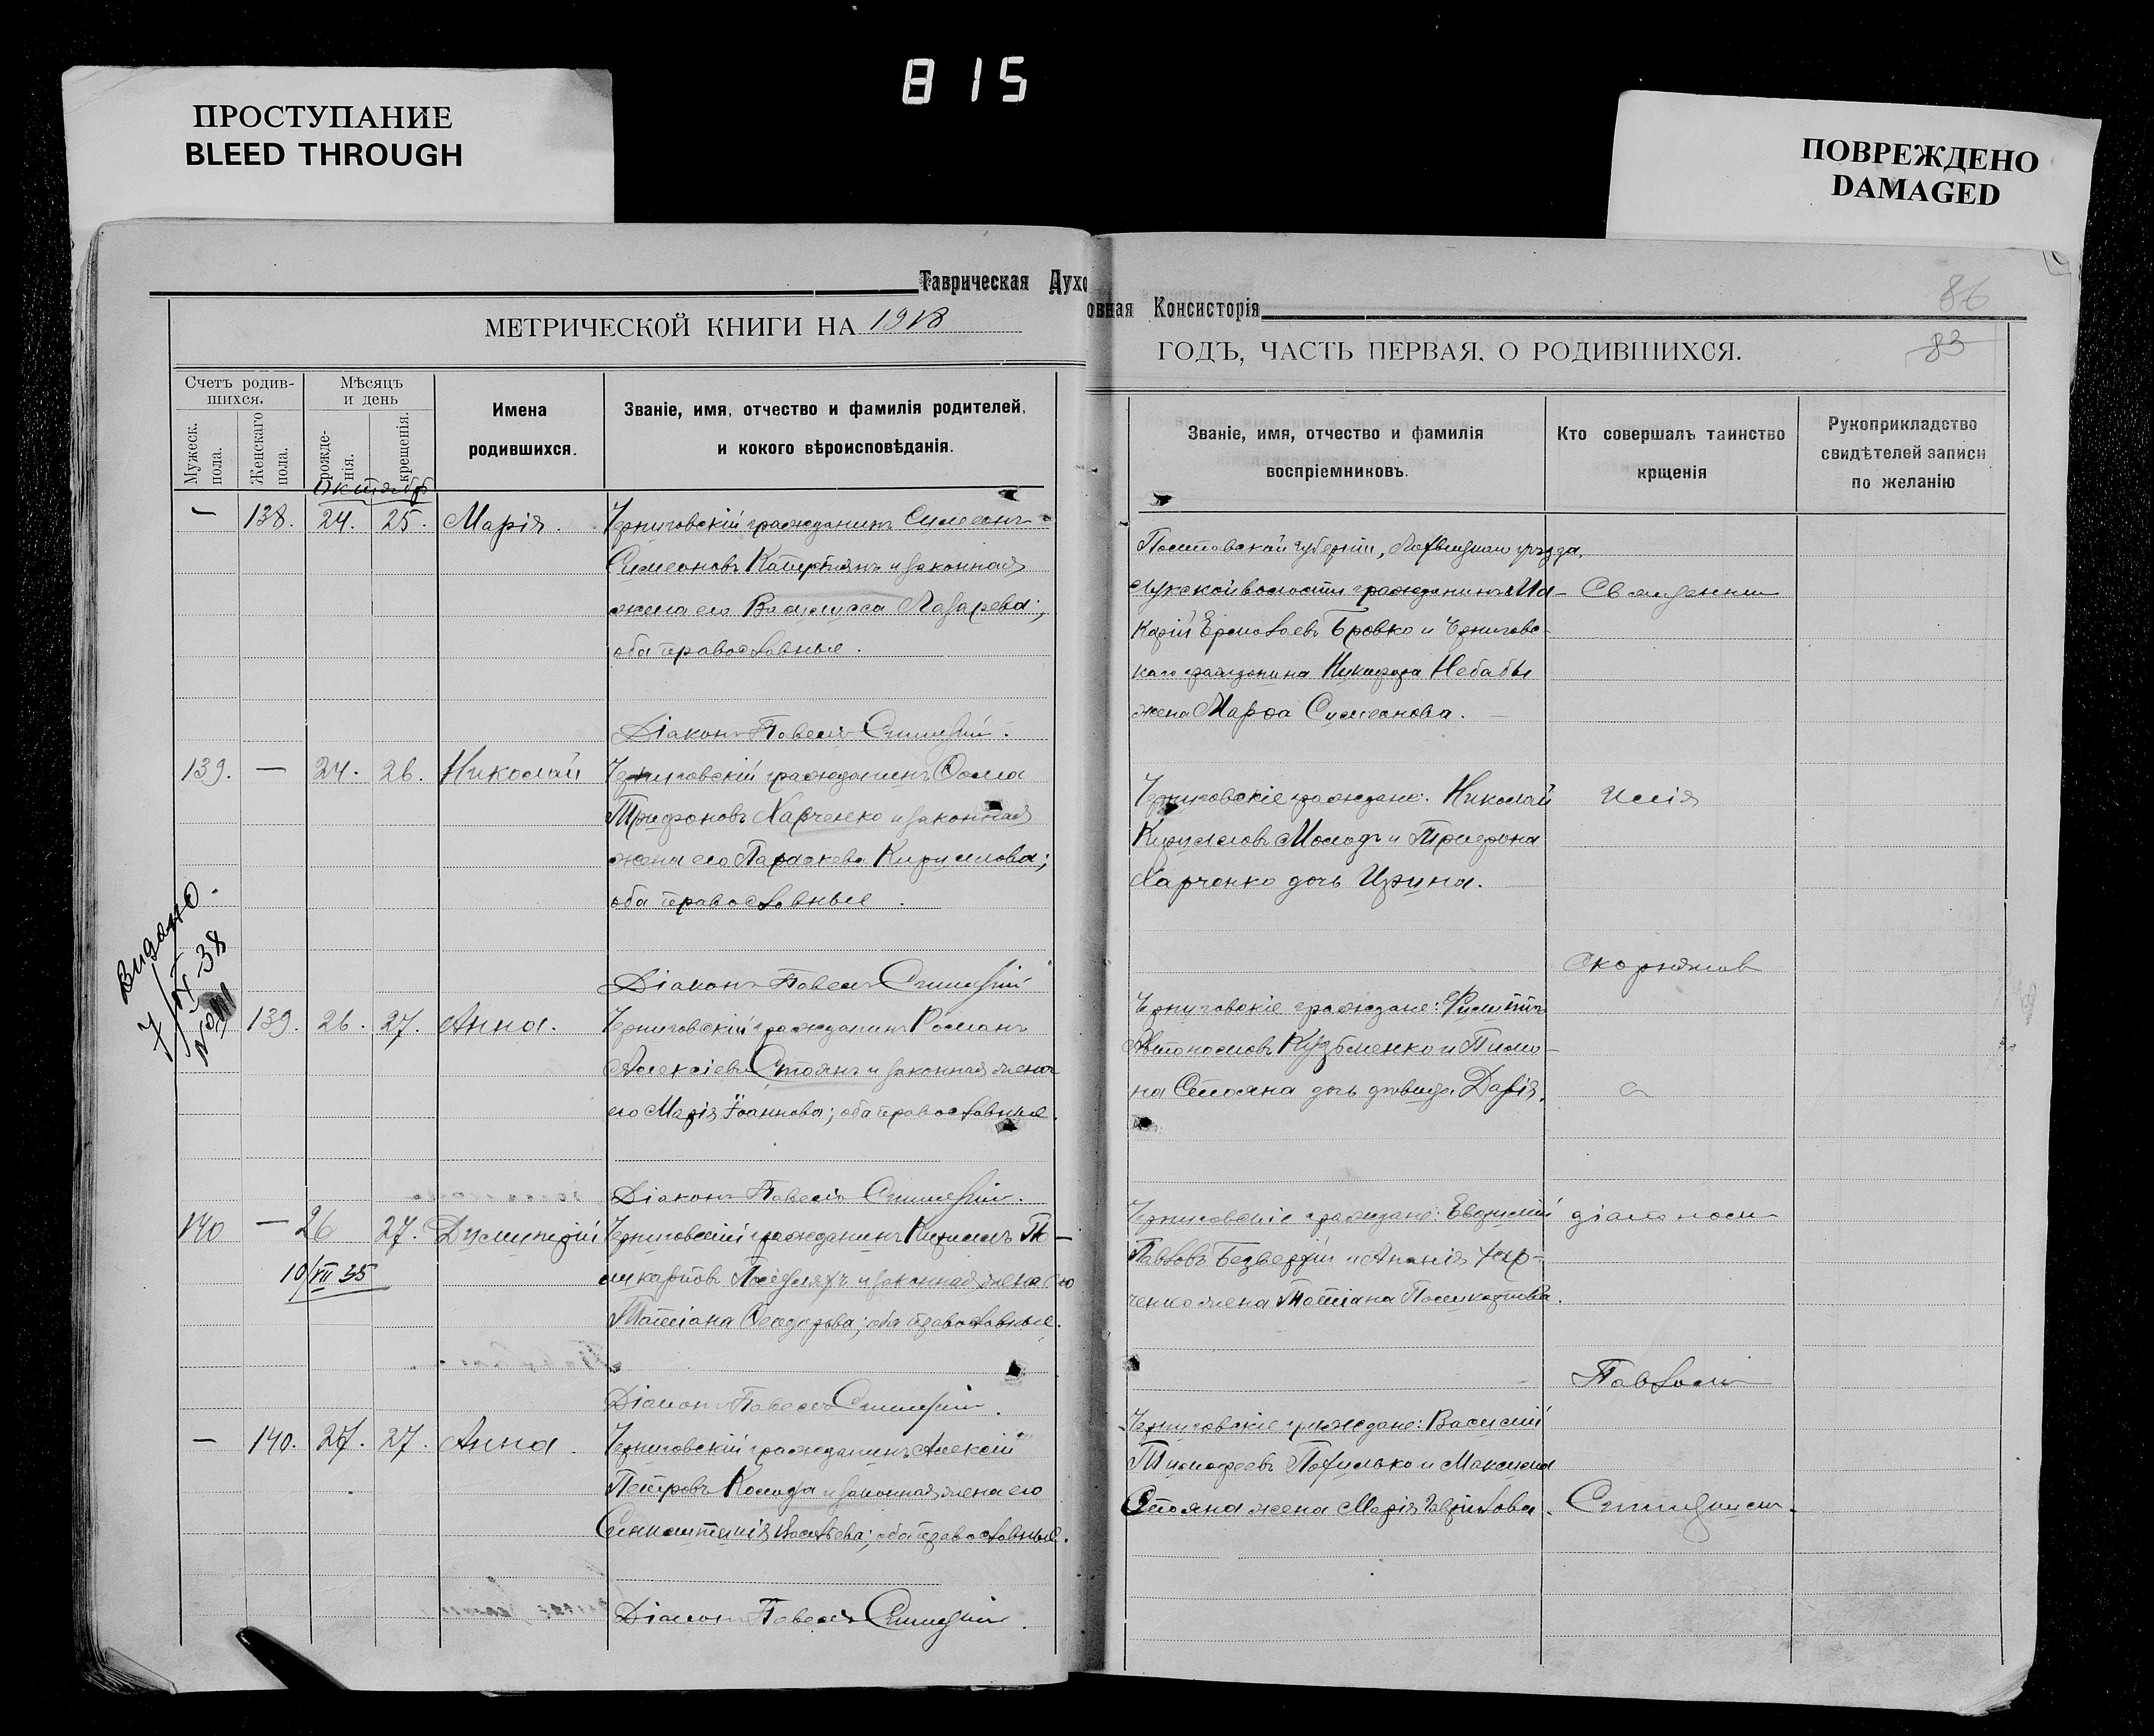 815
ПРОСТУПАНИЕ
BLEED THROUGH
ПОВРЕЖДЕНО
DAMAGED
Таврическая Духовная Консисторія
86
83
МЕТРИЧЕСКОЙ КНИГИ НА 1918
ГОДЪ, ЧАСТЬ ПЕРВАЯ, О РОДИВШИХСЯ.
Счетъ родив-
шихся.
Мужеск.
пола.
Женскаго
пола.
Мѣсяцъ
и день
рожде-
нія.
крещенія.
Имена
родившихся.
Званіе, имя, отчество и фамилія родителей,
и кокого вѣроисповѣданія.
Званіе, имя, отчество и фамилія
воспріемниковъ.
Кто совершалъ таинство
крщенія
Рукоприкладство
свидѣтелей записи
по желанію
Октябрь
— 138. 24. 25. Марія.
Черниговскій гражданинъ Симеонъ
Симеоновъ и законная
жена его Василисса Лазарева;
оба православные.
Діаконъ Павелъ
Полтавской губерніи, уѣзда,
волости гражданинъ Ма-
карій Ермолаевъ Бровко и Черниговс-
каго гражданина Никифора Небабы
жена Марѳа Симеонова.
Священни
139. — 24. 26. Николай
Черниговскій гражданинъ Ѳома
Трифоновъ Харченко и законная
жена его Параскева Кириллова;
оба православные.
Діаконъ Павелъ
Черниговскіе граждане: Николай
Кирилловъ Молодъ и Трифона
Харченко дочь Ирина.
Илія
Скорняков
Видано.
7/IX 38
№
139. 26. 27. Анна.
Черниговскій гражданинъ Романъ
Алексіевъ Стоянъ и законная жена
его Марія Іоаннова; оба православные.
Діаконъ Павелъ
Черниговскіе граждане: Филиппъ
Автономовъ Кузьменко и Тимо-
на Стояна дочь дѣвица Дарія.
с
140 — 26 27. Димитрій
10/VII 35
Черниговскій гражданинъ Кириллъ По-
ликарповъ и законная жена его
Татіана Ѳеодорова; оба православные.
Діаконъ Павелъ
Черниговскіе граждане: Евфимій
Павловъ Безверхій и Ананія Хар-
ченко жена Татіана Поликарпова.
діакономъ
Павломъ
— 140. 27. 27. Анна.
Черниговскій гражданинъ Алексій
Петровъ Коляда и законная жена его
Васильева; оба православные.
Діаконъ Павелъ
Черниговскіе граждане: Василій
Тимофеевъ и Максима
Стояна жена Марія Гавріилова.